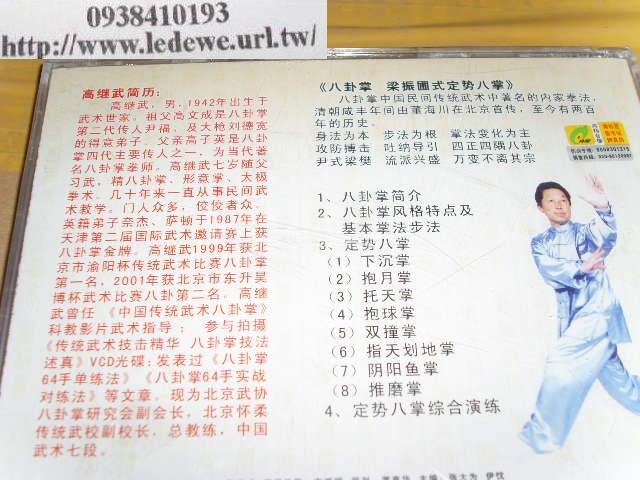 0938410193
http://www.ledewe.url.tw/
高继武简历:
高继武，男，1942年出生于
武术世家。祖父高文成是八卦掌
第二代传人尹福、及大枪刘德宽
的得意弟子。父亲高子英是八卦
掌四代主要传人之一，为当代著
名八卦掌拳师。高继武七岁随父
习武，精八卦掌、形意掌、太极
拳术。几十年来一直从事民间武
术教学。门人众多，佼佼者众、
英籍弟子奈杰、萨顿于1987年在
天津第二届国际武术邀请赛上获
八卦掌金牌。高继武1999年获北
京市渝阳杯传统武术比赛八卦掌
第一名，2001年获北京市东升吴
博杯武术比赛八卦第二名。高继
武曾任《中国传统武术八卦掌》
科教影片武术指导； 参与拍摄
《传统武术技击精华 八卦掌技法
述真》VCD光碟；发表过《八卦掌
64手单练法》《八卦掌64手实战
对练法》等文章。现为北京武协
八卦掌研究会副会长，北京怀柔
传统武校副校长，总教练，中国
武术七段。
《八卦掌 梁振圃式定势八掌》
八卦掌中国民间传统武术中著名的内家拳法，
清朝咸丰年间由董海川在北京首传，至今有两百
年的历史。
身法为本 步法为根 掌法变化为主
攻防搏击 吐纳导引 四正四隅八卦
尹式梁樊 流派兴盛 万变不离其宗
1、八卦掌简介
2、八卦掌风格特点及
基本掌法步法
3、定势八掌
（1）下沉掌
（2）抱月掌
（3）托天掌
（4）抱球掌
（5）双撞掌
（6）指天划地掌
（7）阴阳鱼掌
（8）推磨掌
4、定势八掌综合演练